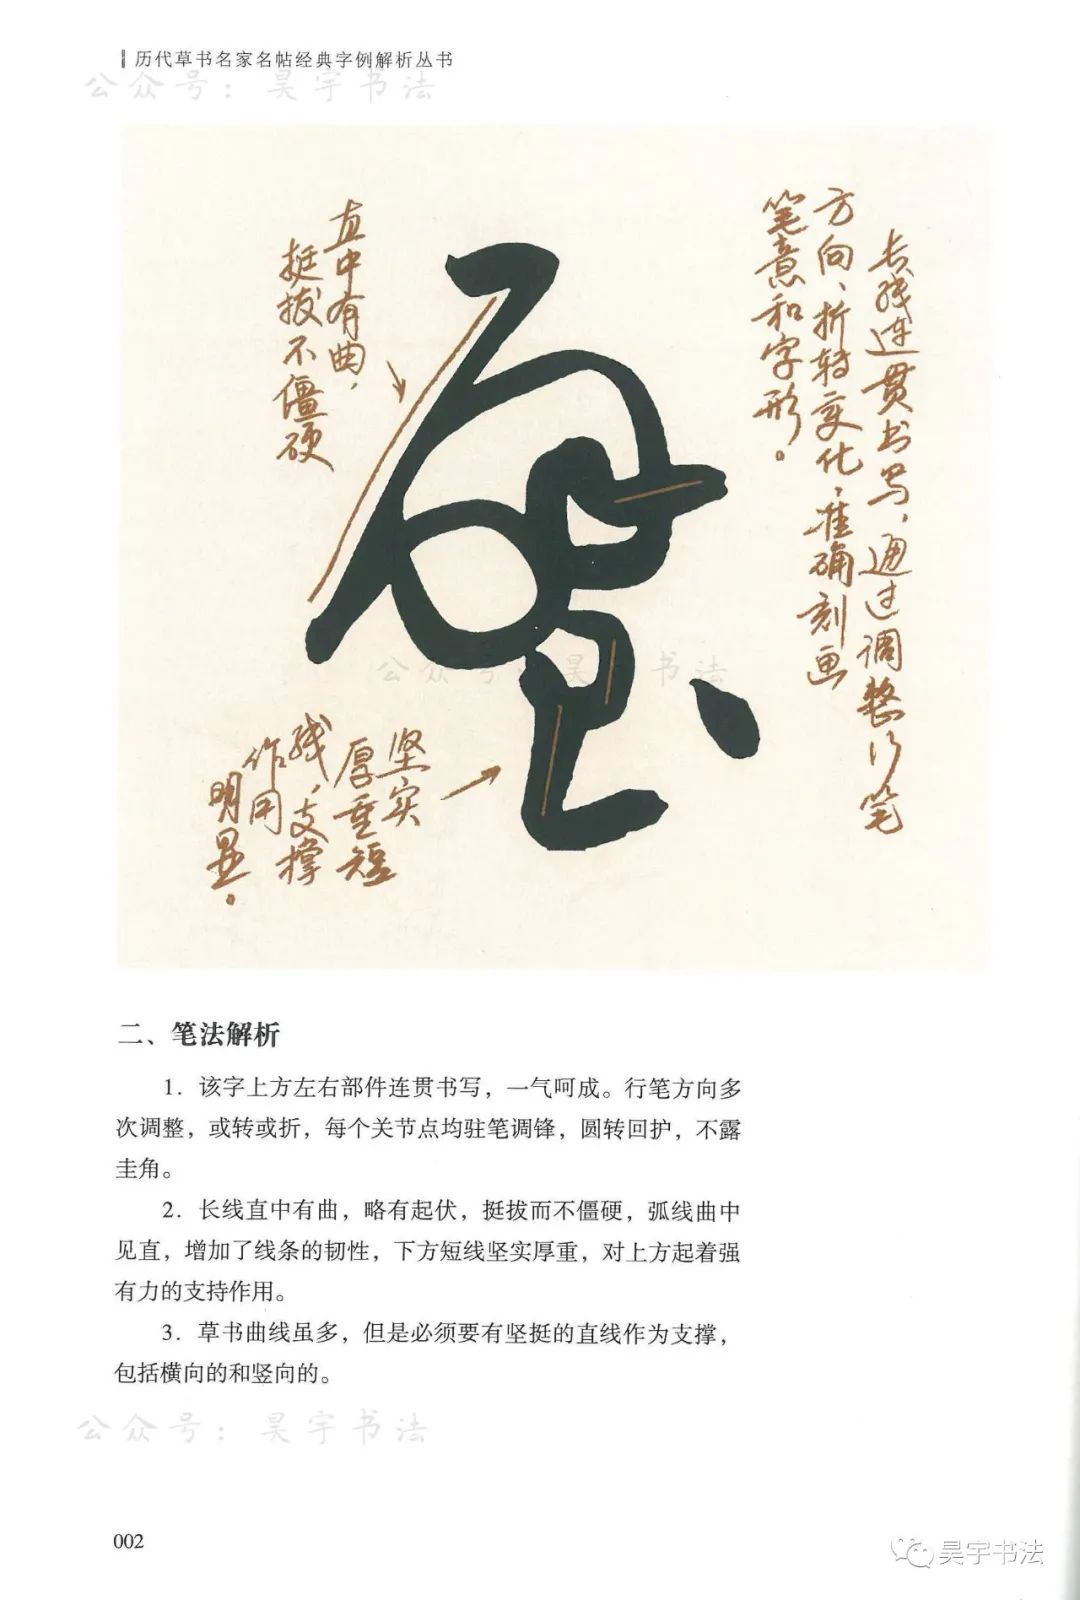 历代草书名家名帖经典字例解析丛书
公众号：昊宇书法
长线连贯书写，通过调整行笔
方向、折转变化，准确刻画
笔意和字形。
直中有曲，
挺拔不僵硬
公众号：昊宇书法
坚实
厚重短
线，支撑
作用
明显。
二、笔法解析
1．该字上方左右部件连贯书写，一气呵成。行笔方向多
次调整，或转或折，每个关节点均驻笔调锋，圆转回护，不露
圭角。
2．长线直中有曲，略有起伏，挺拔而不僵硬，弧线曲中
见直，增加了线条的韧性，下方短线坚实厚重，对上方起着强
有力的支持作用。
3．草书曲线虽多，但是必须要有坚挺的直线作为支撑，
包括横向的和竖向的。
公众号：昊宇书法
002
昊宇书法